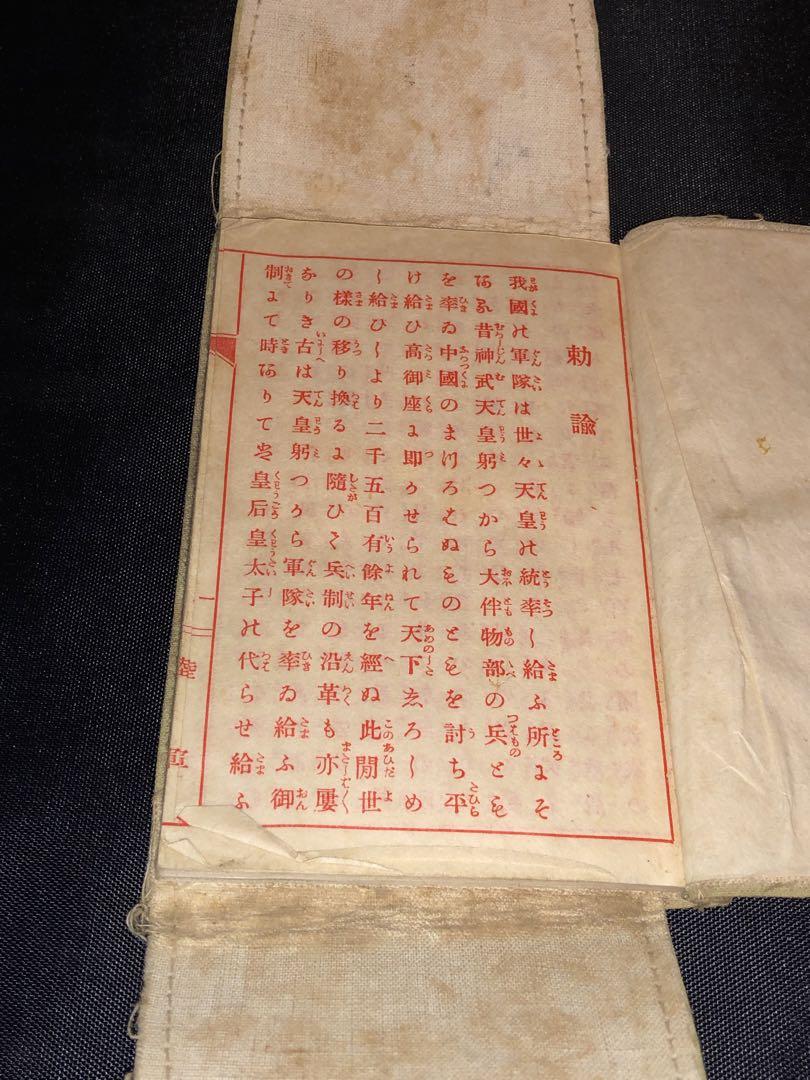 勅諭
我國の軍隊は世々天皇の統率し給ふ所にそ
ある昔神武天皇躬つから大伴物部の兵とも
を率ゐ中國のまつろはぬものともを討ち平
け給ひ高御座に即かせられて天下しろしめ
し給ひしより二千五百有餘年を經ぬ此閒世
の樣の移り換るに隨ひて兵制の沿革も亦屢
なりき古は天皇躬つから軍隊を率ゐ給ふ御
制にて時ありては皇后皇太子の代らせ給ふ